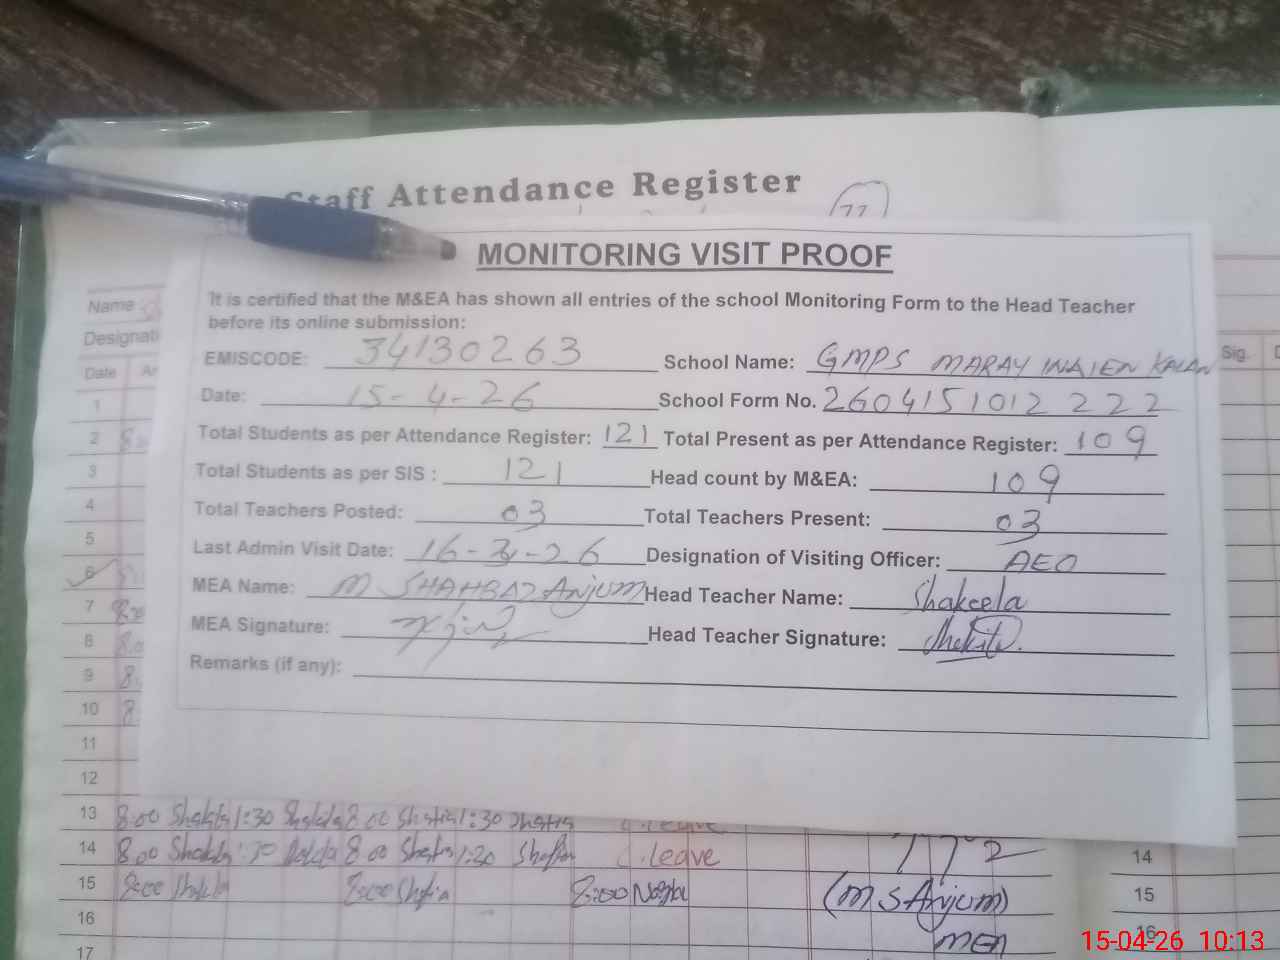 Staff Attendance Register
77
MONITORING VISIT PROOF
It is certified that the M&EA has shown all entries of the school Monitoring Form to the Head Teacher
before its online submission:
EMISCODE: 34130263 School Name: GMPS MARAY INAIEN KALAN
Date: 15-4-26 School Form No. 2604151012222
Total Students as per Attendance Register: 121 Total Present as per Attendance Register: 109
Total Students as per SIS : 121 Head count by M&EA: 109
Total Teachers Posted: 03 Total Teachers Present: 03
Last Admin Visit Date: 16-3-26 Designation of Visiting Officer: AEO
MEA Name: M SHAHBAZ Anjum Head Teacher Name: Shakeela
MEA Signature: Head Teacher Signature:
Remarks (if any):
Name
Designati
Date Ar
Sig.
1
2
3
4
5
6
7
8
9
10
11
12
13 8:00 1:30 8:00 1:30 C.leave
14 8:00 8:00 1:30 C.leave 14
15 8:00 8:00 8:00 (M SAnjum) 15
16 MEA 16
17
15-04-26 10:13